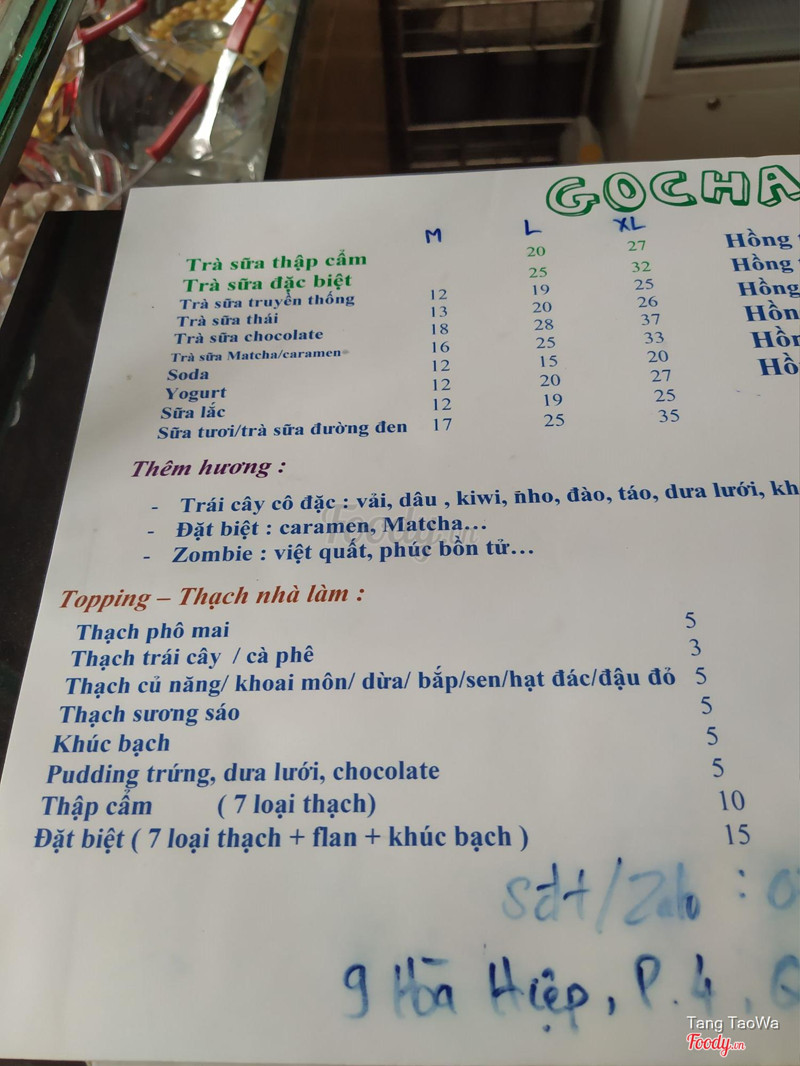 GOCHA
M L XL
Trà sữa thập cẩm 20 27
Trà sữa đặc biệt 25 32
Trà sữa truyền thống 12 19 25
Trà sữa thái 13 20 26
Trà sữa chocolate 18 28 37
Trà sữa Matcha/caramen 16 25 33
Soda 12 15 20
Yogurt 12 20 27
Sữa lắc 12 19 25
Sữa tươi/trà sữa đường đen 17 25 35
Hồng
Hồng
Hồng
Hồn
Hồn
Hồ
Thêm hương :
- Trái cây cô đặc : vải, dâu , kiwi, nho, đào, táo, dưa lưới, kh
- Đặt biệt : caramen, Matcha...
- Zombie : việt quất, phúc bồn tử...
Topping – Thạch nhà làm :
Thạch phô mai 5
Thạch trái cây / cà phê 3
Thạch củ năng/ khoai môn/ dừa/ bắp/sen/hạt đác/đậu đỏ 5
Thạch sương sáo 5
Khúc bạch 5
Pudding trứng, dưa lưới, chocolate 5
Thập cẩm ( 7 loại thạch) 10
Đặt biệt ( 7 loại thạch + flan + khúc bạch ) 15
Sđt/Zalo : 0
9 Hòa Hiệp, P.4, Q
Foody.vn
Tang TaoWa
Foody.vn